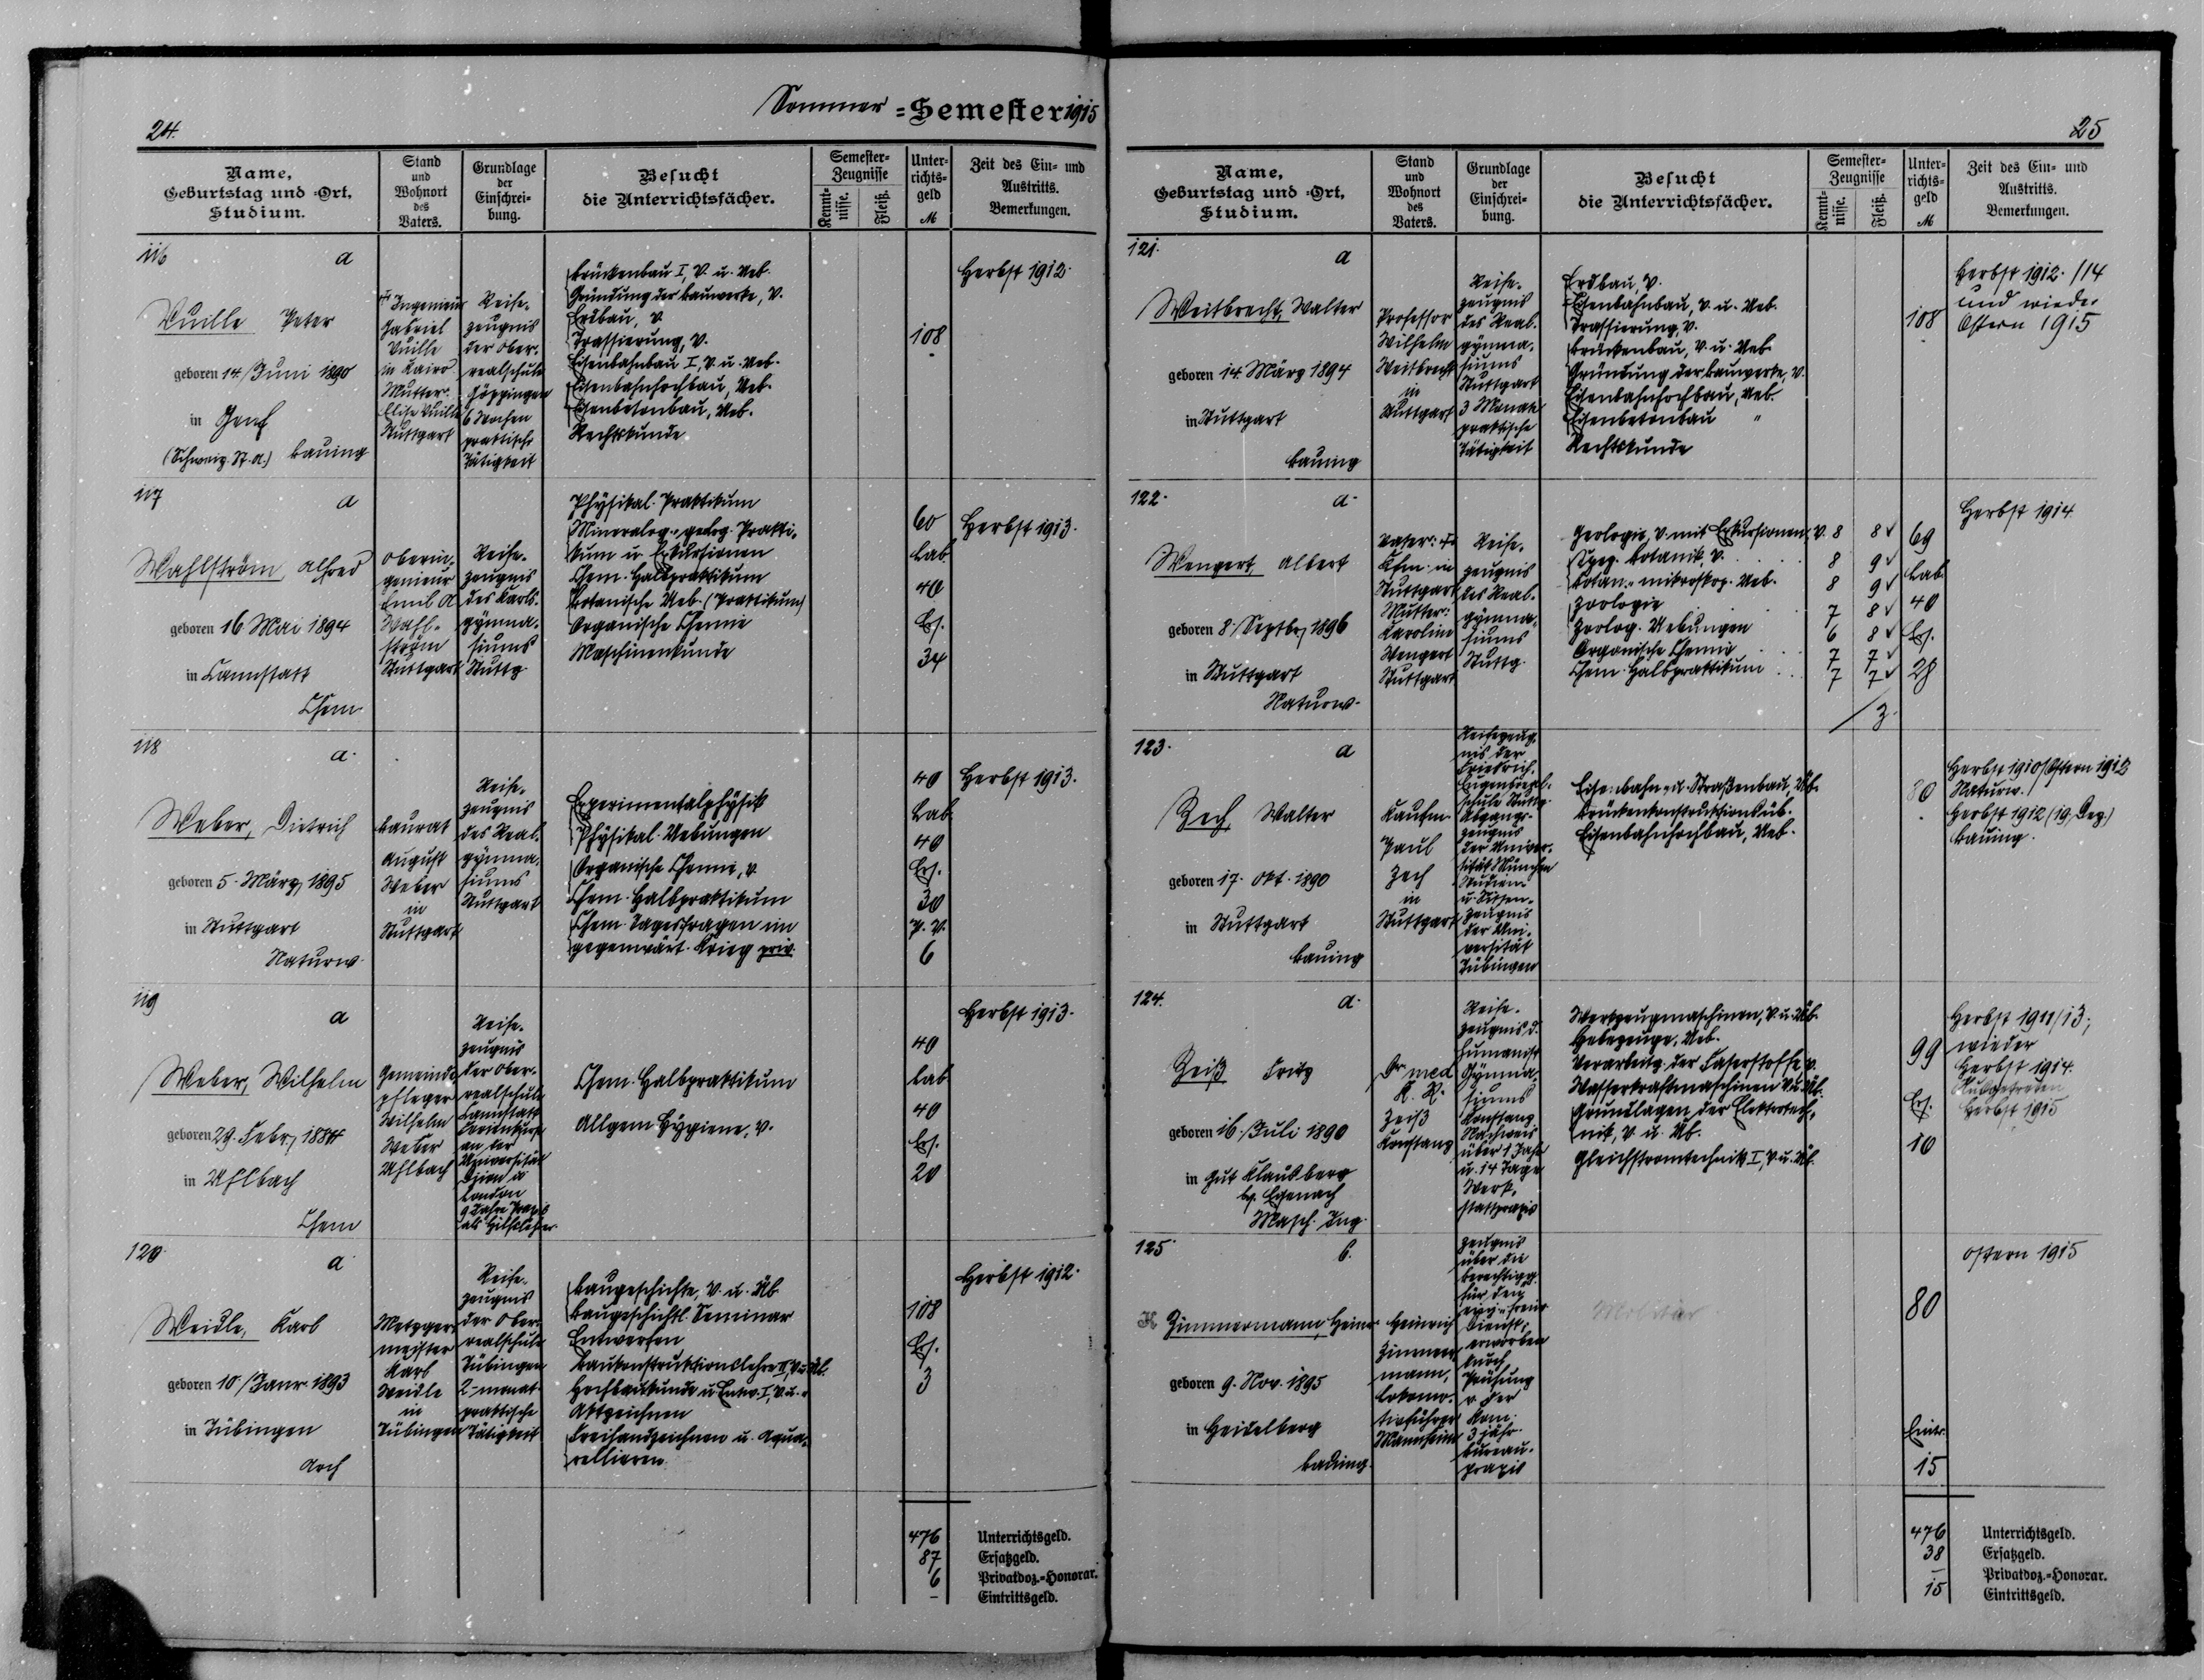 Sommer = Semester 1915
24.
Name, Geburtstag und =Ort, Studium.
Stand und Wohnort des Vaters.
Grundlage der Einschrei= bung.
Besucht die Unterrichtsfächer.
Semester= Zeugnisse
Kennt= nisse.
Fleiß.
Unter= richts= geld M
Zeit des Ein= und Austritts. Bemerkungen.
116
a
Vuille Peter
geboren 14. Juni 1890
in Genf
(Schweiz. St. A.) Bauing
† Ingenieur
Gabriel
Vuille
in Kairo
Mutter:
Elise Vuille
Stuttgart
Reife-
zeugnis
der Ober-
realschule
Göppingen
6 Wochen
praktische
Tätigkeit
Brückenbau I, V. u. Ueb.
Gründung der Bauwerke, V.
Erdbau, V.
Trassierung, V.
Eisenbahnbau I, V. u. Ueb.
Eisenbahnhochbau, Ueb.
Eisenbetonbau, Ueb.
Rechtskunde
108
Herbst 1912.
117
a
Wahlström, Alfred
geboren 16 Mai 1894
in Cannstatt
Chem.
Oberin-
genieur
Emil A
Wahl-
ström
Stuttgart
Reife-
zeugnis
des Karls-
gymna-
siums
Stuttg
Physikal. Praktikum
Mineralog.- geolog. Prakti-
kum u. Exkursionen
Chem. Halbpraktikum
Botanische Ueb. (Praktikum)
Organische Chemie
Maschinenkunde
60
Lab.
40
Ers.
34
Herbst 1913.
118
a.
Weber, Dietrich
geboren 5. März 1895
in Stuttgart
Naturw.
Baurat
August
Weber
in
Stuttgart
Reife-
zeugnis
des Real-
gymna-
siums
Stuttgart
Experimentalphysik
Physikal. Uebungen
Organische Chemie, V.
Chem. Halbpraktikum
Chem. Tagesfragen im
gegenwärt. Krieg priv.
40
Lab.
40
Ers.
30
P. V.
6
Herbst 1913.
119
a
Weber, Wilhelm
geboren 29. Febr. 1884
in Uhlbach
Chem
Gemeinde-
pfleger
Wilhelm
Weber
Uhlbach
Reife-
zeugnis
der Ober-
realschule
Cannstatt
Ferienkurse
an der
Universität
Dijon u
London
9 Jahre Praxis
als Hilfslehrer
Chem. Halbpraktikum
Allgem. Hygiene, V.
40
Lab
40
Ers.
20
Herbst 1913.
120.
a
Weidle, Karl
geboren 10. Janr. 1893
in Tübingen
Arch
Metzger-
meister
Karl
Weidle
in
Tübingen
Reife-
zeugnis
der Ober-
realschule
Tübingen
2-monat.
praktische
Tätigkeit
Baugeschichte, V. u. Üb.
Baugeschichtl. Seminar
Entwerfen
Baukonstruktionslehre II, V. u. Üb.
Hochbaukunde u. Entw. I, V. u. "
Aktzeichnen
Freihandzeichnen u. Aqua-
rellieren
108
Ers.
3
Herbst 1912.
476 Unterrichtsgeld.
87 Ersatzgeld.
6 Privatdoz.=Honorar.
– Eintrittsgeld.
25
Name, Geburtstag und =Ort, Studium.
Stand und Wohnort des Vaters.
Grundlage der Einschrei= bung.
Besucht die Unterrichtsfächer.
Semester= Zeugnisse
Kennt= nisse.
Fleiß.
Unter= richts= geld M
Zeit des Ein= und Austritts. Bemerkungen.
121.
a
Weitbrecht, Walter
geboren 14. März 1894
in Stuttgart
Bauing
Professor
Wilhelm
Weitbrecht
in
Stuttgart
Reife-
zeugnis
des Real-
gymna-
siums
Stuttgart
3 Monate
praktische
Tätigkeit
Erdbau, V.
Eisenbahnbau, V. u. Ueb.
Trassierung, V.
Brückenbau, V. u. Ueb.
Gründung der Bauwerke, V.
Eisenbahnhochbau, Ueb.
Eisenbetonbau "
Rechtskunde
108
Herbst 1912. /14
und wieder
Ostern 1915
122.
a.
Wengert, Albert
geboren 8. Septbr. 1896
in Stuttgart
Naturw.
Vater: †
Kfm. in
Stuttgart
Mutter:
Karoline
Wengert
Stuttgart
Reife-
zeugnis
des Real-
gymna-
siums
Stuttg.
Geologie, V. mit Exkursionen V. 8 8
Spez. Botanik, V. 8 9
Botan.- mikroskop. Ueb. 8 9
Zoologie 7 8
Zoolog. Uebungen 6 8
Organische Chemie 7 7
Chem. Halbpraktikum 7 7
/ Z.
69
Lab.
40
Ers.
28
Herbst 1914.
123.
a
Zech, Walter
geboren 17. Okt. 1890
in Stuttgart
Bauing
Kaufm.
Paul
Zech
in
Stuttgart
Reifezeug-
nis der
Friedrich-
Eugensreal-
schule Stuttg.
Abgangs-
zeugnis
der Univer-
sität München
Studien-
u. Sitten-
zeugnis
der Uni-
versität
Tübingen
Eisenbahn- u. Straßenbau, Üb.
Brückenkonstruktion Üb.
Eisenbahnhochbau, Ueb.
80
Herbst 1910/Ostern 1912
Naturw.
Herbst 1912 (19. Dez.)
Bauing.
124.
a.
Zeiß Fritz
geboren 16. Juli 1890
in Gut Klausberg
bs. Eisenach
Masch. Ing.
Dr med
K. R.
Zeiß
Konstanz
Reife-
zeugnis d.
humanist
Gymna-
siums
Konstanz
Nachweis
über 1 Jahr
u. 14 Tage
Werk-
stattpraxis
Werkzeugmaschinen, V. u. Üb.
Hebezeuge, Ueb.
Verarbeitg. der Faserstoffe V.
Wasserkraftmaschinen V. u. Üb.
Grundlagen der Elektrotech-
nik, V. u. Üb.
Gleichstromtechnik I, V. u. Üb.
99
Ers.
10
Herbst 1911/13;
wieder
Herbst 1914.
Ausgetreten
Herbst 1915
125.
b.
Zimmermann, Heinr.
geboren 9. Nov. 1895
in Heidelberg
Bauing.
Heinrich
Zimmer-
mann,
Lokomo-
tivführer
Mannheim
Zeugnis
über die
Berechtigg.
für den
einj.-freiw.
Dienst,
erworben
durch
Prüfung
v. der
Kom.
3 jähr.
Bureau-
praxis
Militär
80
Eintr.
15
Ostern 1915
476 Unterrichtsgeld.
38 Ersatzgeld.
– Privatdoz.=Honorar.
15 Eintrittsgeld.